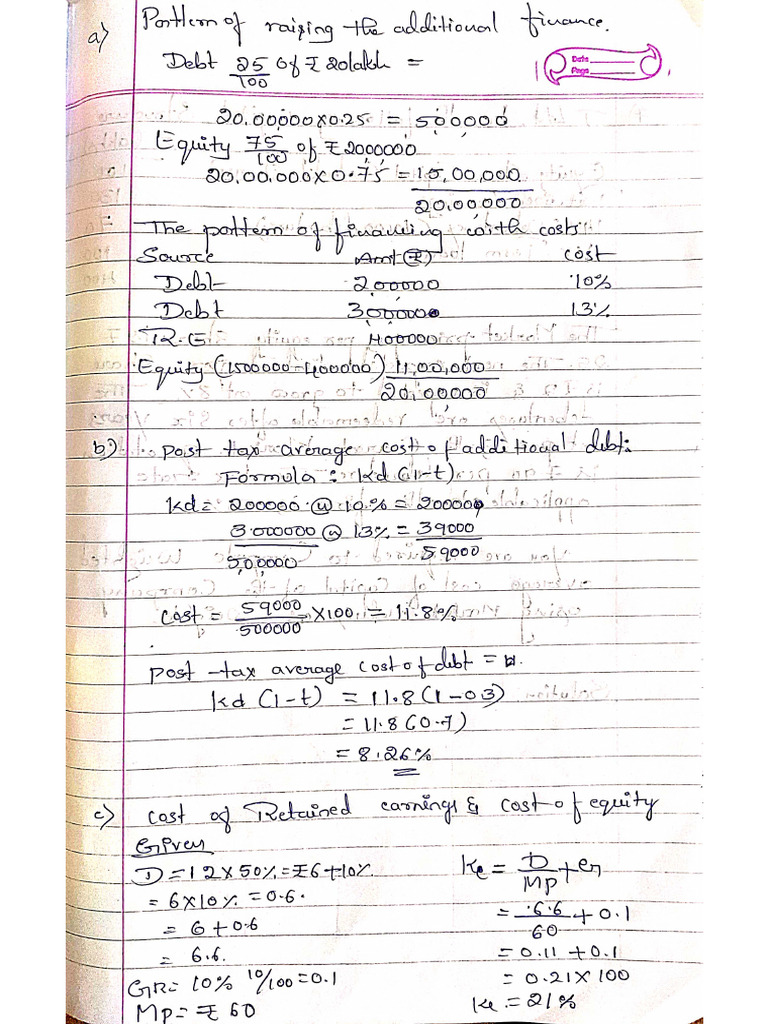 a) Pattern of raising the additional finance.
Debt 25/100 of ₹ 20 lakh =
Date
Page
20,00,000 x 0.25 = 500000
Equity 75/100 of ₹ 2000000
20,00,000 x 0.75 = 15,00,000
20,00,000
The pattern of financing with costs
Source Amt (₹) cost
Debt 2,00000 10%
Debt 3,00000 13%
R.E 400000
Equity (1500000-400000) 11,00,000
20,00000
b) post tax average cost of additional debt:
Formula : kd (1-t)
kd = 200000 @ 10% = 20000
3,00000 @ 13% = 39000
5,00000 59000
cost = 59000/500000 x 100 = 11.8%
post-tax average cost of debt =
kd (1-t) = 11.8 (1-03)
= 11.8 (0.7)
= 8.26%
c) cost of Retained earnings & cost of equity
Given
D = 12 x 50% = ₹6 + 10%
= 6 x 10% = 0.6.
= 6 + 0.6
= 6.6.
GR = 10% 10/100 = 0.1
Mp = ₹ 60
Ke = D/Mp + Gr
= 6.6/60 + 0.1
= 0.11 + 0.1
= 0.21 x 100
Ke = 21%